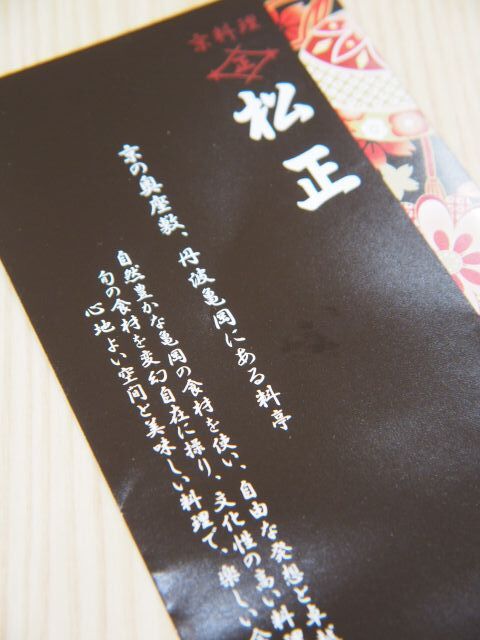 京料理
正
松正
京の奥座敷、丹波亀岡にある料亭
自然豊かな亀岡の食材を使い、自由な発想と卓
旬の食材を変幻自在に操り、文化性の高い料理
心地よい空間と美味しい料理で、楽しい